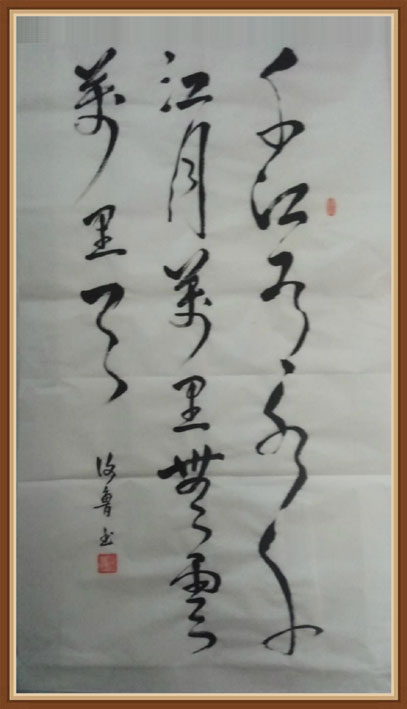 千江有水千
江月萬里無雲
萬里天